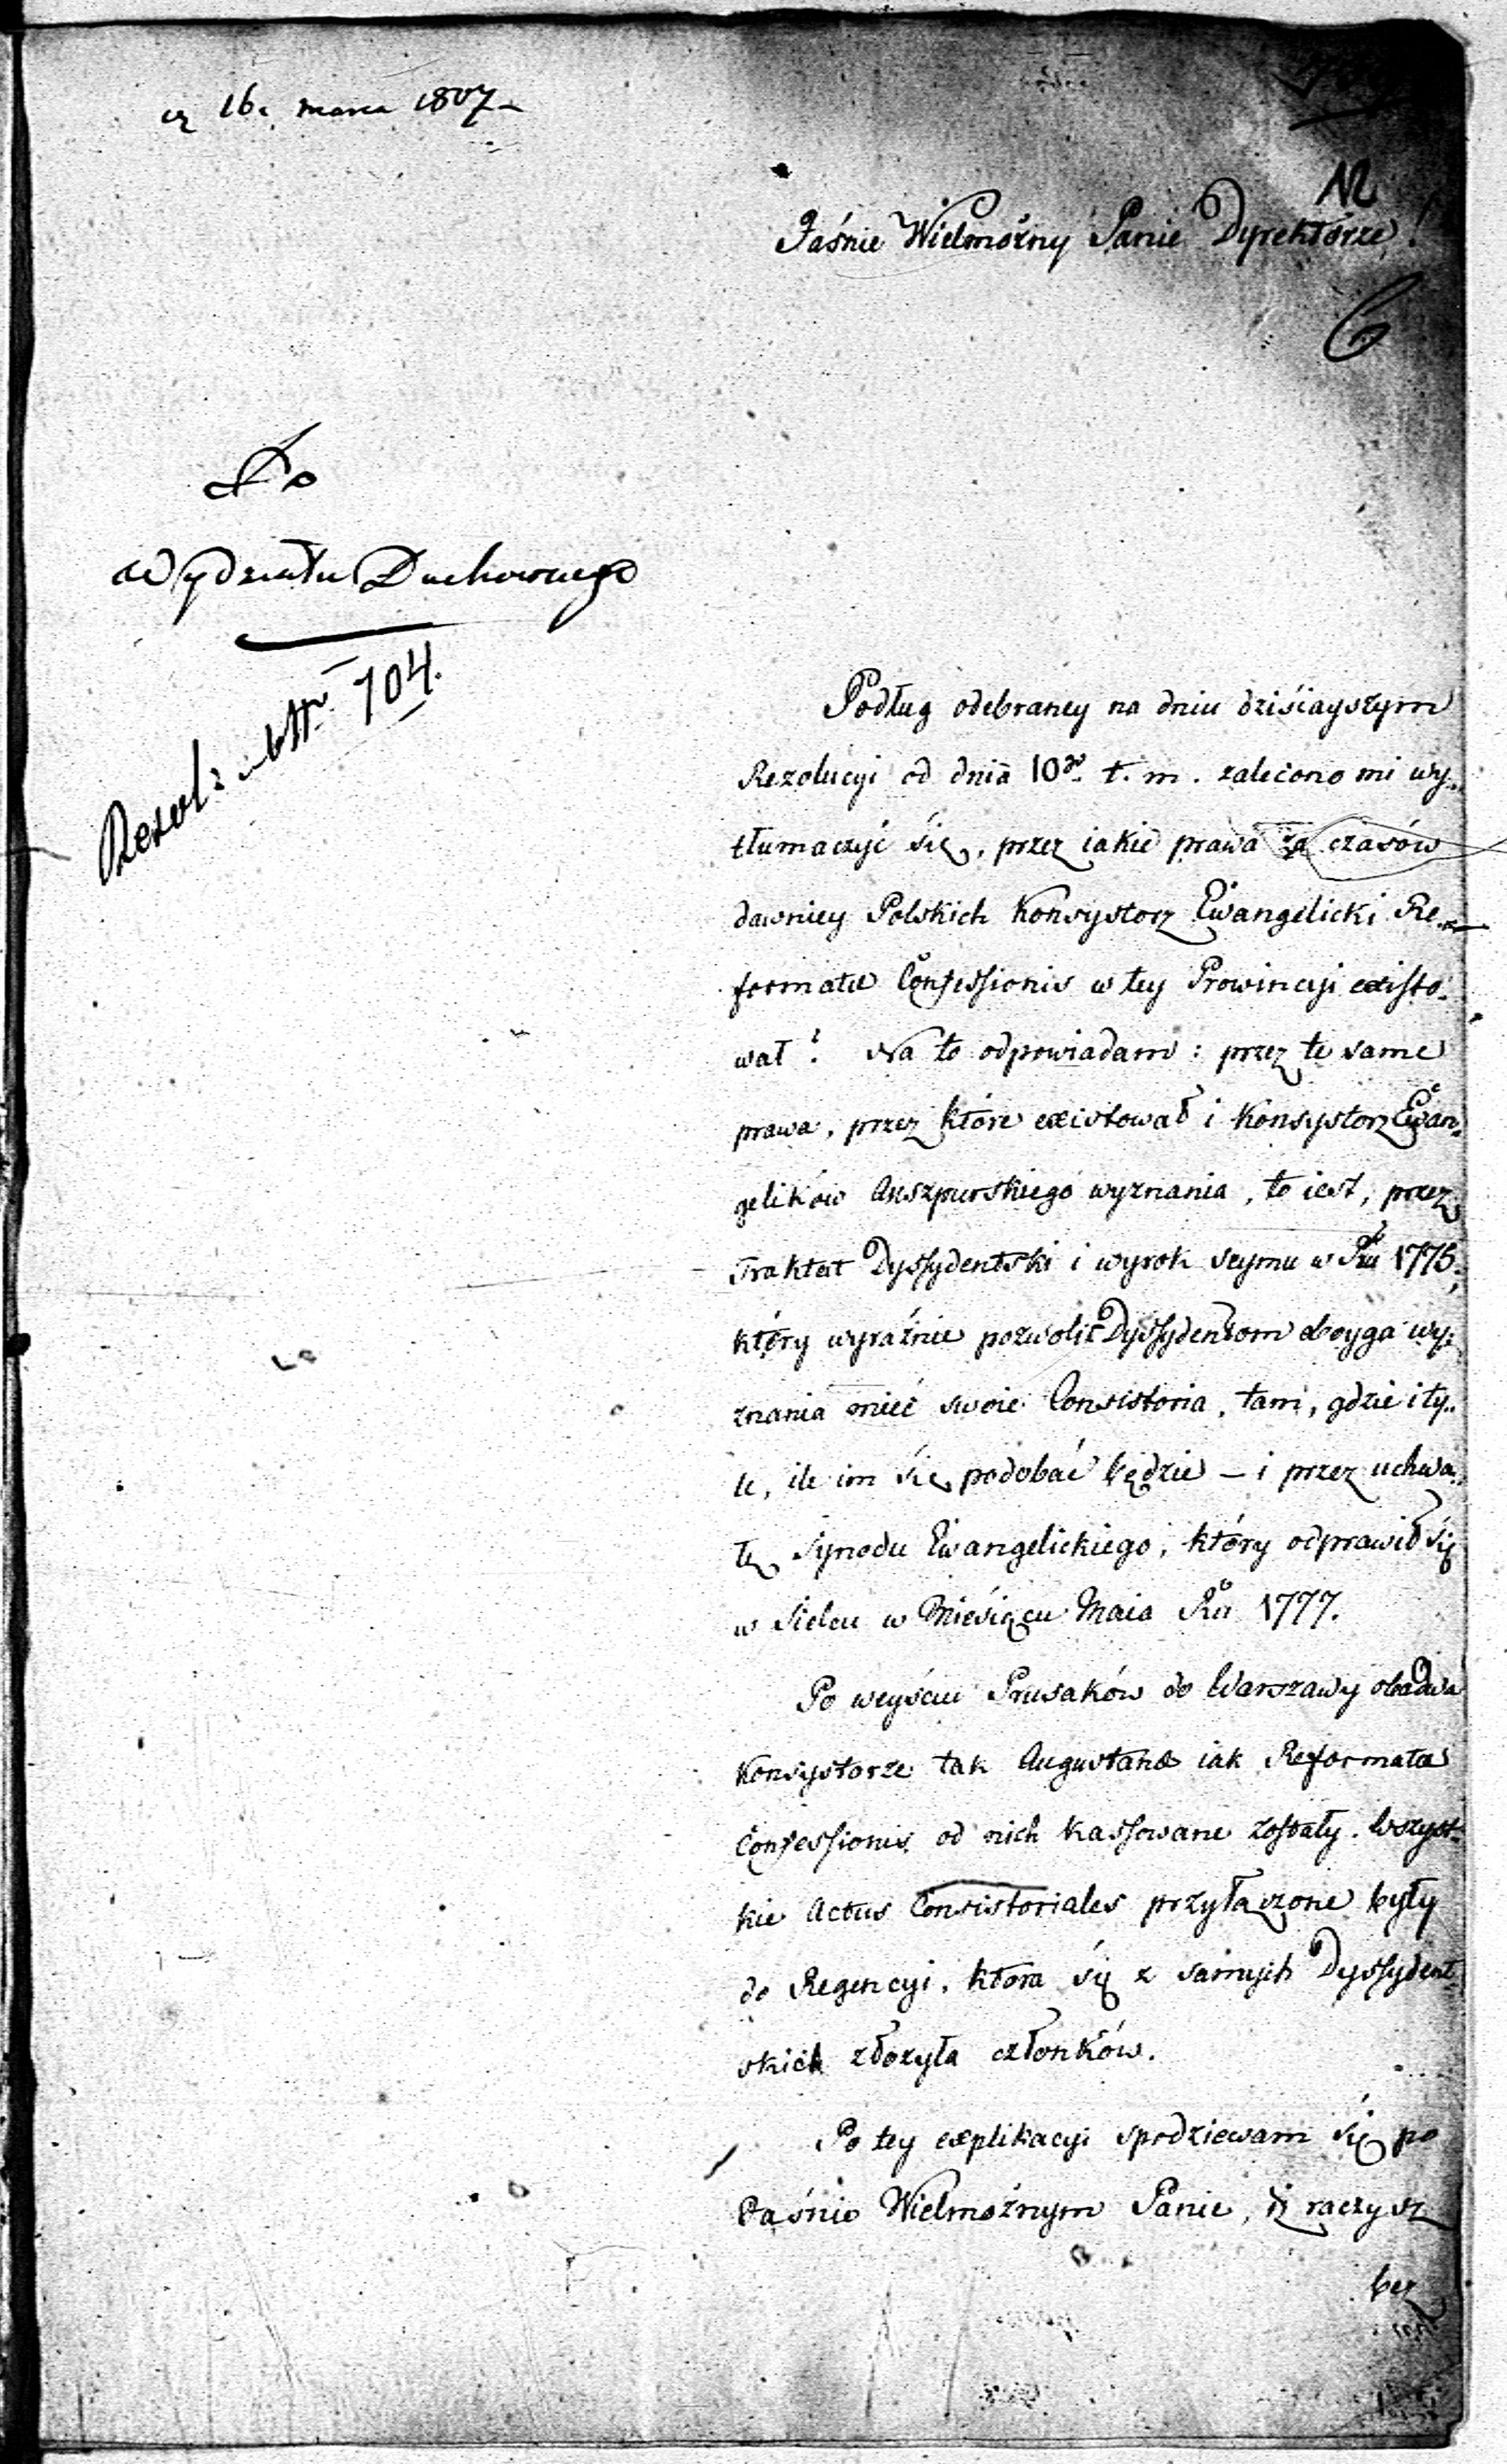 16. marca 1807
12
Jaśnie Wielmożny Panie Dyrektorze!
6
Do
Wydziału Duchownego
Rezol: 104.
Podług odebraney na dniu dzisiayszym
Rezolucyi od dnia 10go t. m. zalecono mi wy„
tłumaczyć się, przez iakie prawa za czasów
dawniey Polskich Konsystorz Ewangelicki Re„
formatæ Confessionis w tey Prowincyi existo„
wał? Na to odpowiadam: przez te same
prawa, przez które existował i Konsystorz Ewan„
gelików Auszpurskiego wyznania, to iest, przez
Traktat Dyssydentski i wyrok seymu w Rku 1775,
który wyraźnie pozwolił Dyssydentom oboyga wy„
znania mieć swoie Consistoria, tam, gdzie i ty„
le, ile im się podobać będzie – i przez uchwa„
łę Synodu Ewangelickiego, który odprawił się
w Sielcu w Miesiącu Maia Rku 1777.
Po weyściu Prusaków do Warszawy obadwa
Konsystorze tak Augustanæ iak Reformatæ
Confessionis od nich kassowane zostały. Wszyst„
kie Actus Consistoriales przyłączone były
do Regencyi, która się z samych Dyssydent„
skich złożyła członków.
Po tey explikacyi spodziewam się po
Jaśnie Wielmożnym Panie, iż raczysz
bez